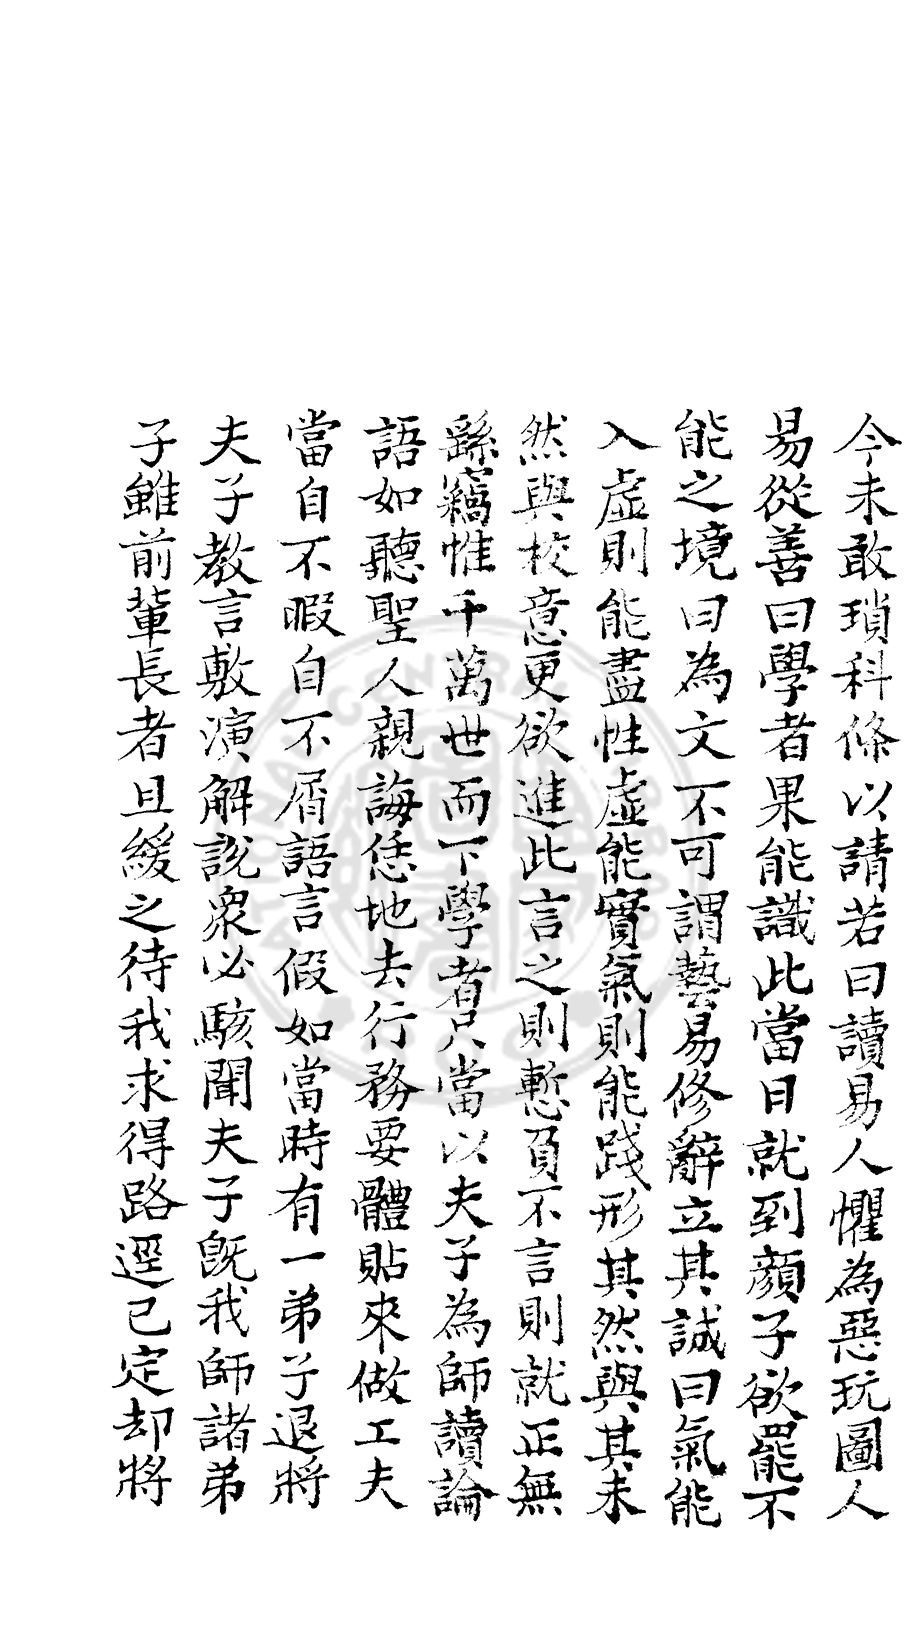 今未敢瑣科條以請若曰讀易人懼為惡玩圖人
易從善曰學者果能識此當日就到顏子欲罷不
能之境曰為文不可謂藝易修辭立其誠曰氣能
入虛則能盡性虛能實氣則能踐形其然與其未
然與校意更欲進此言之則慙負不言則就正無
繇竊惟千萬世而下學者只當以夫子為師讀論
語如聽聖人親誨恁地去行務要體貼來做工夫
當自不暇自不屑語言假如當時有一弟子退將
夫子教言敷演解說衆必駭聞夫子旣我師諸弟
子雖前輩長者且緩之待我求得路逕已定却將